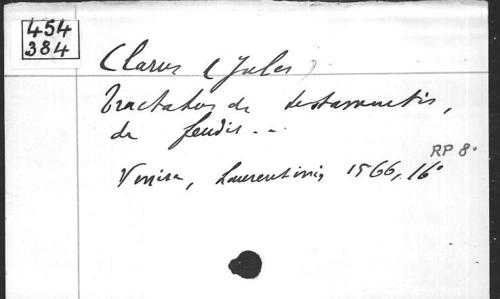 454
384
Clarus (Jules)
Tractatus de testamentis,
de feudis...
RP 8°
Venise, Laurentinis 1566, 16°